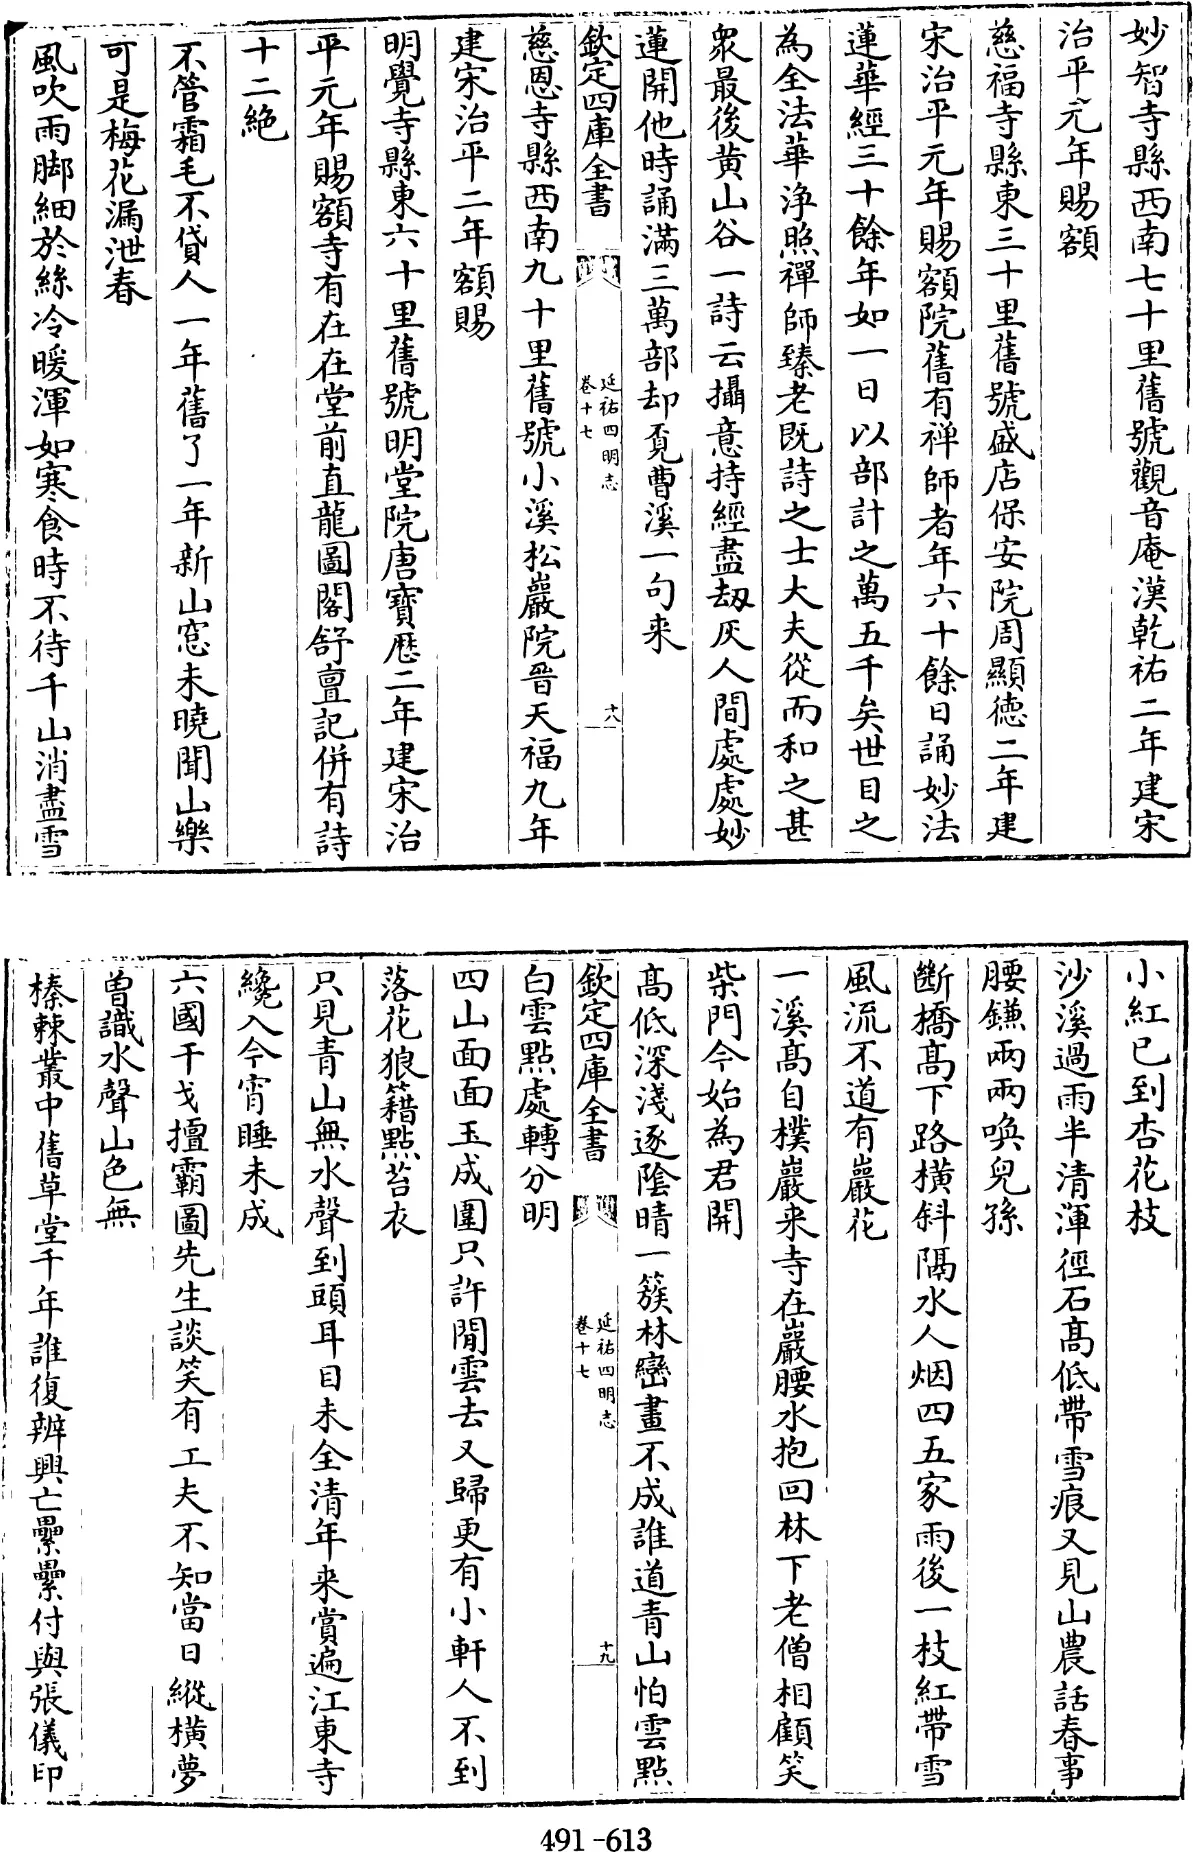 妙智寺縣西南七十里舊號觀音庵漢乾祐二年建宋
治平元年賜額
慈福寺縣東三十里舊號盛店保安院周顯德二年建
宋治平元年賜額院舊有禅師者年六十餘日誦妙法
蓮華經三十餘年如一日以部計之萬五千矣世目之
為全法華浄照禪師臻老既詩之士大夫從而和之甚
衆最後黄山谷一詩云攝意持經盡刼灰人間處處妙
蓮開他時誦滿三萬部却覓曹溪一句来
欽定四庫全書
延祐四明志
卷十七
十八
慈恩寺縣西南九十里舊號小溪松巖院晉天福九年
建宋治平二年額賜
明覺寺縣東六十里舊號明堂院唐寳歴二年建宋治
平元年賜額寺有在在堂前直龍圖閣舒亶記併有詩
十二絶
不管霜毛不貸人一年舊了一年新山窓未曉聞山樂
可是梅花漏泄春
風吹雨脚細於絲冷暖渾如寒食時不待千山消盡雪
小紅已到杏花枝
沙溪過雨半清渾徑石髙低帶雪痕又見山農話春事
腰鎌兩兩喚兒孫
斷橋髙下路横斜隔水人烟四五家雨後一枝紅帶雪
風流不道有巖花
一溪髙自樸巖来寺在巖腰水抱回林下老僧相顧笑
柴門今始為君開
髙低深淺逐陰晴一簇林巒畫不成誰道青山怕雲點
欽定四庫全書
延祐四明志
卷十七
十九
白雲點處轉分明
四山面面玉成圍只許閒雲去又歸更有小軒人不到
落花狼籍點苔衣
只見青山無水聲到頭耳目未全清年来賞遍江東寺
纔入今宵睡未成
六國干戈擅霸圖先生談笑有工夫不知當日縱横夢
曽識水聲山色無
榛棘叢中舊草堂千年誰復辨興亡纍纍付與張儀印
491-613